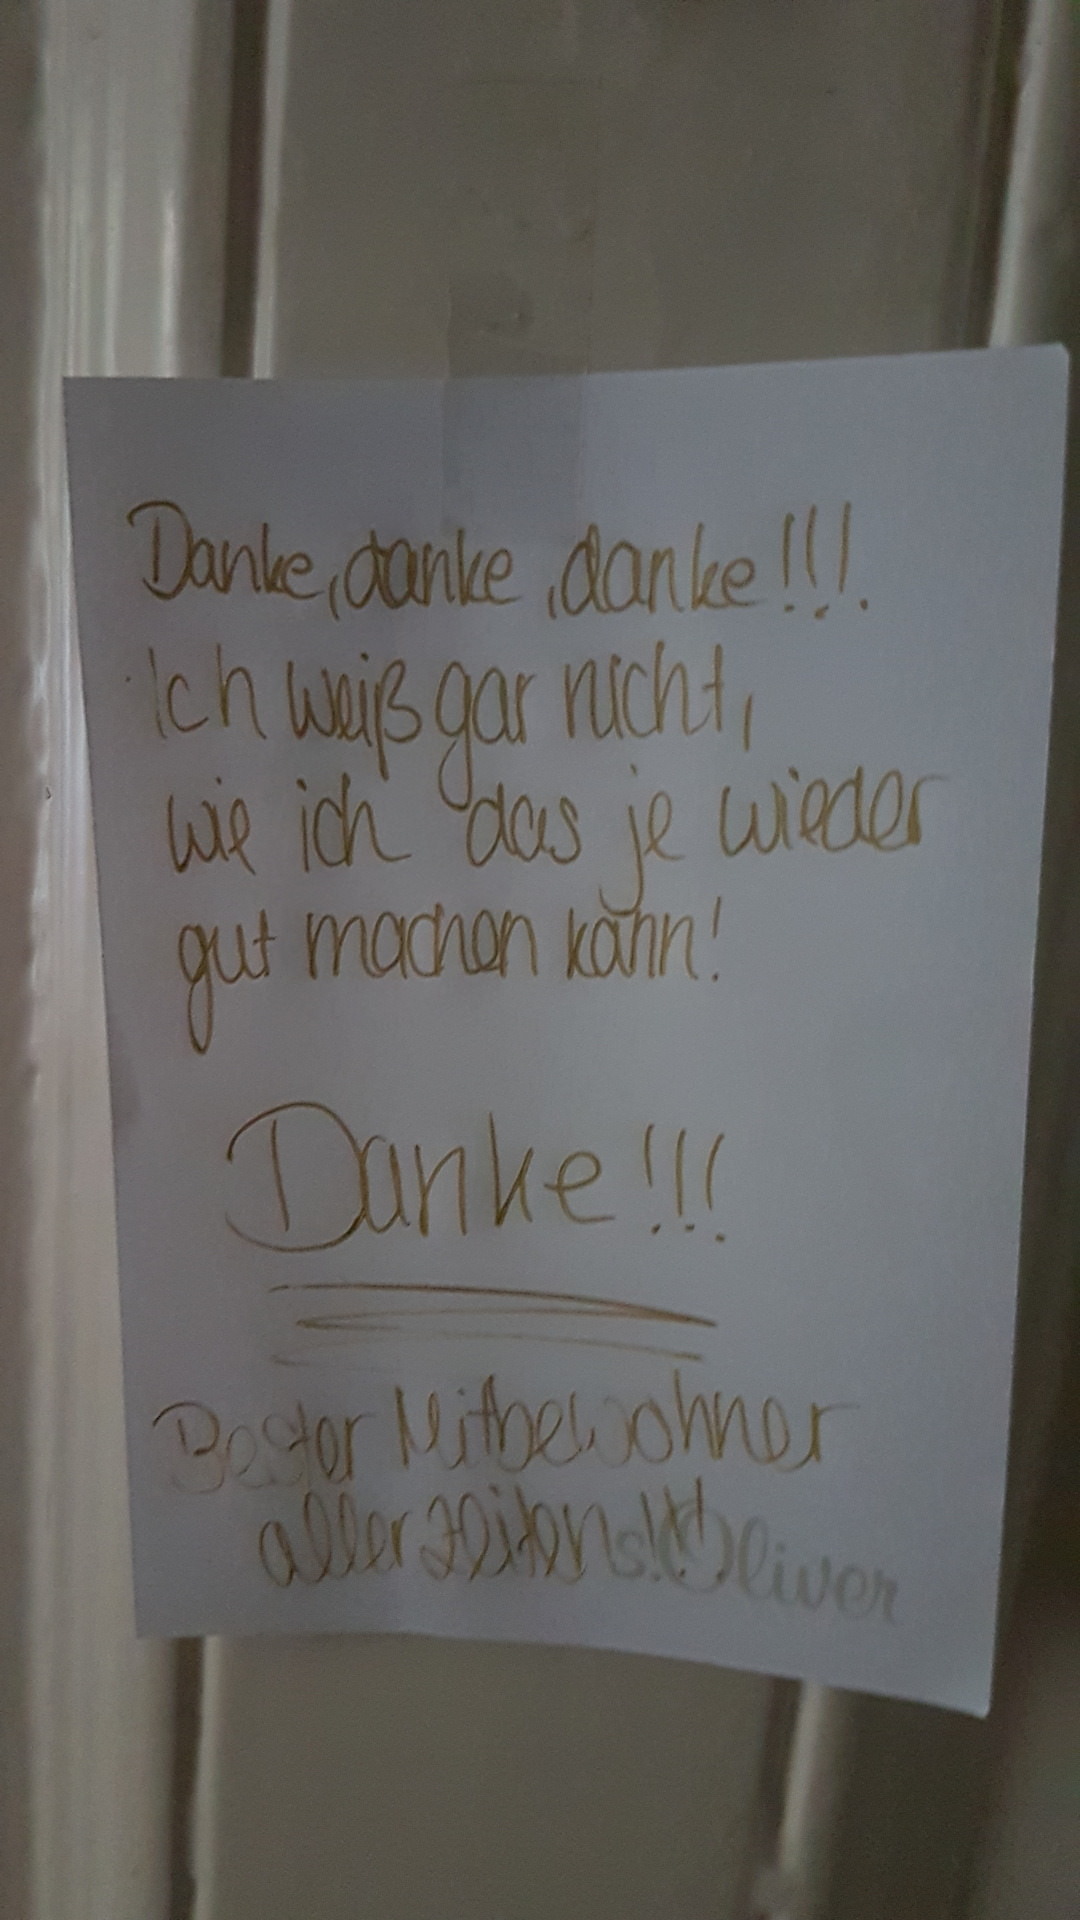 Danke, danke, danke!!!
Ich weiß gar nicht,
wie ich das je wieder
gut machen kann!
Danke!!!
Bester Mitbewohner
aller Zeiten!!! Oliver